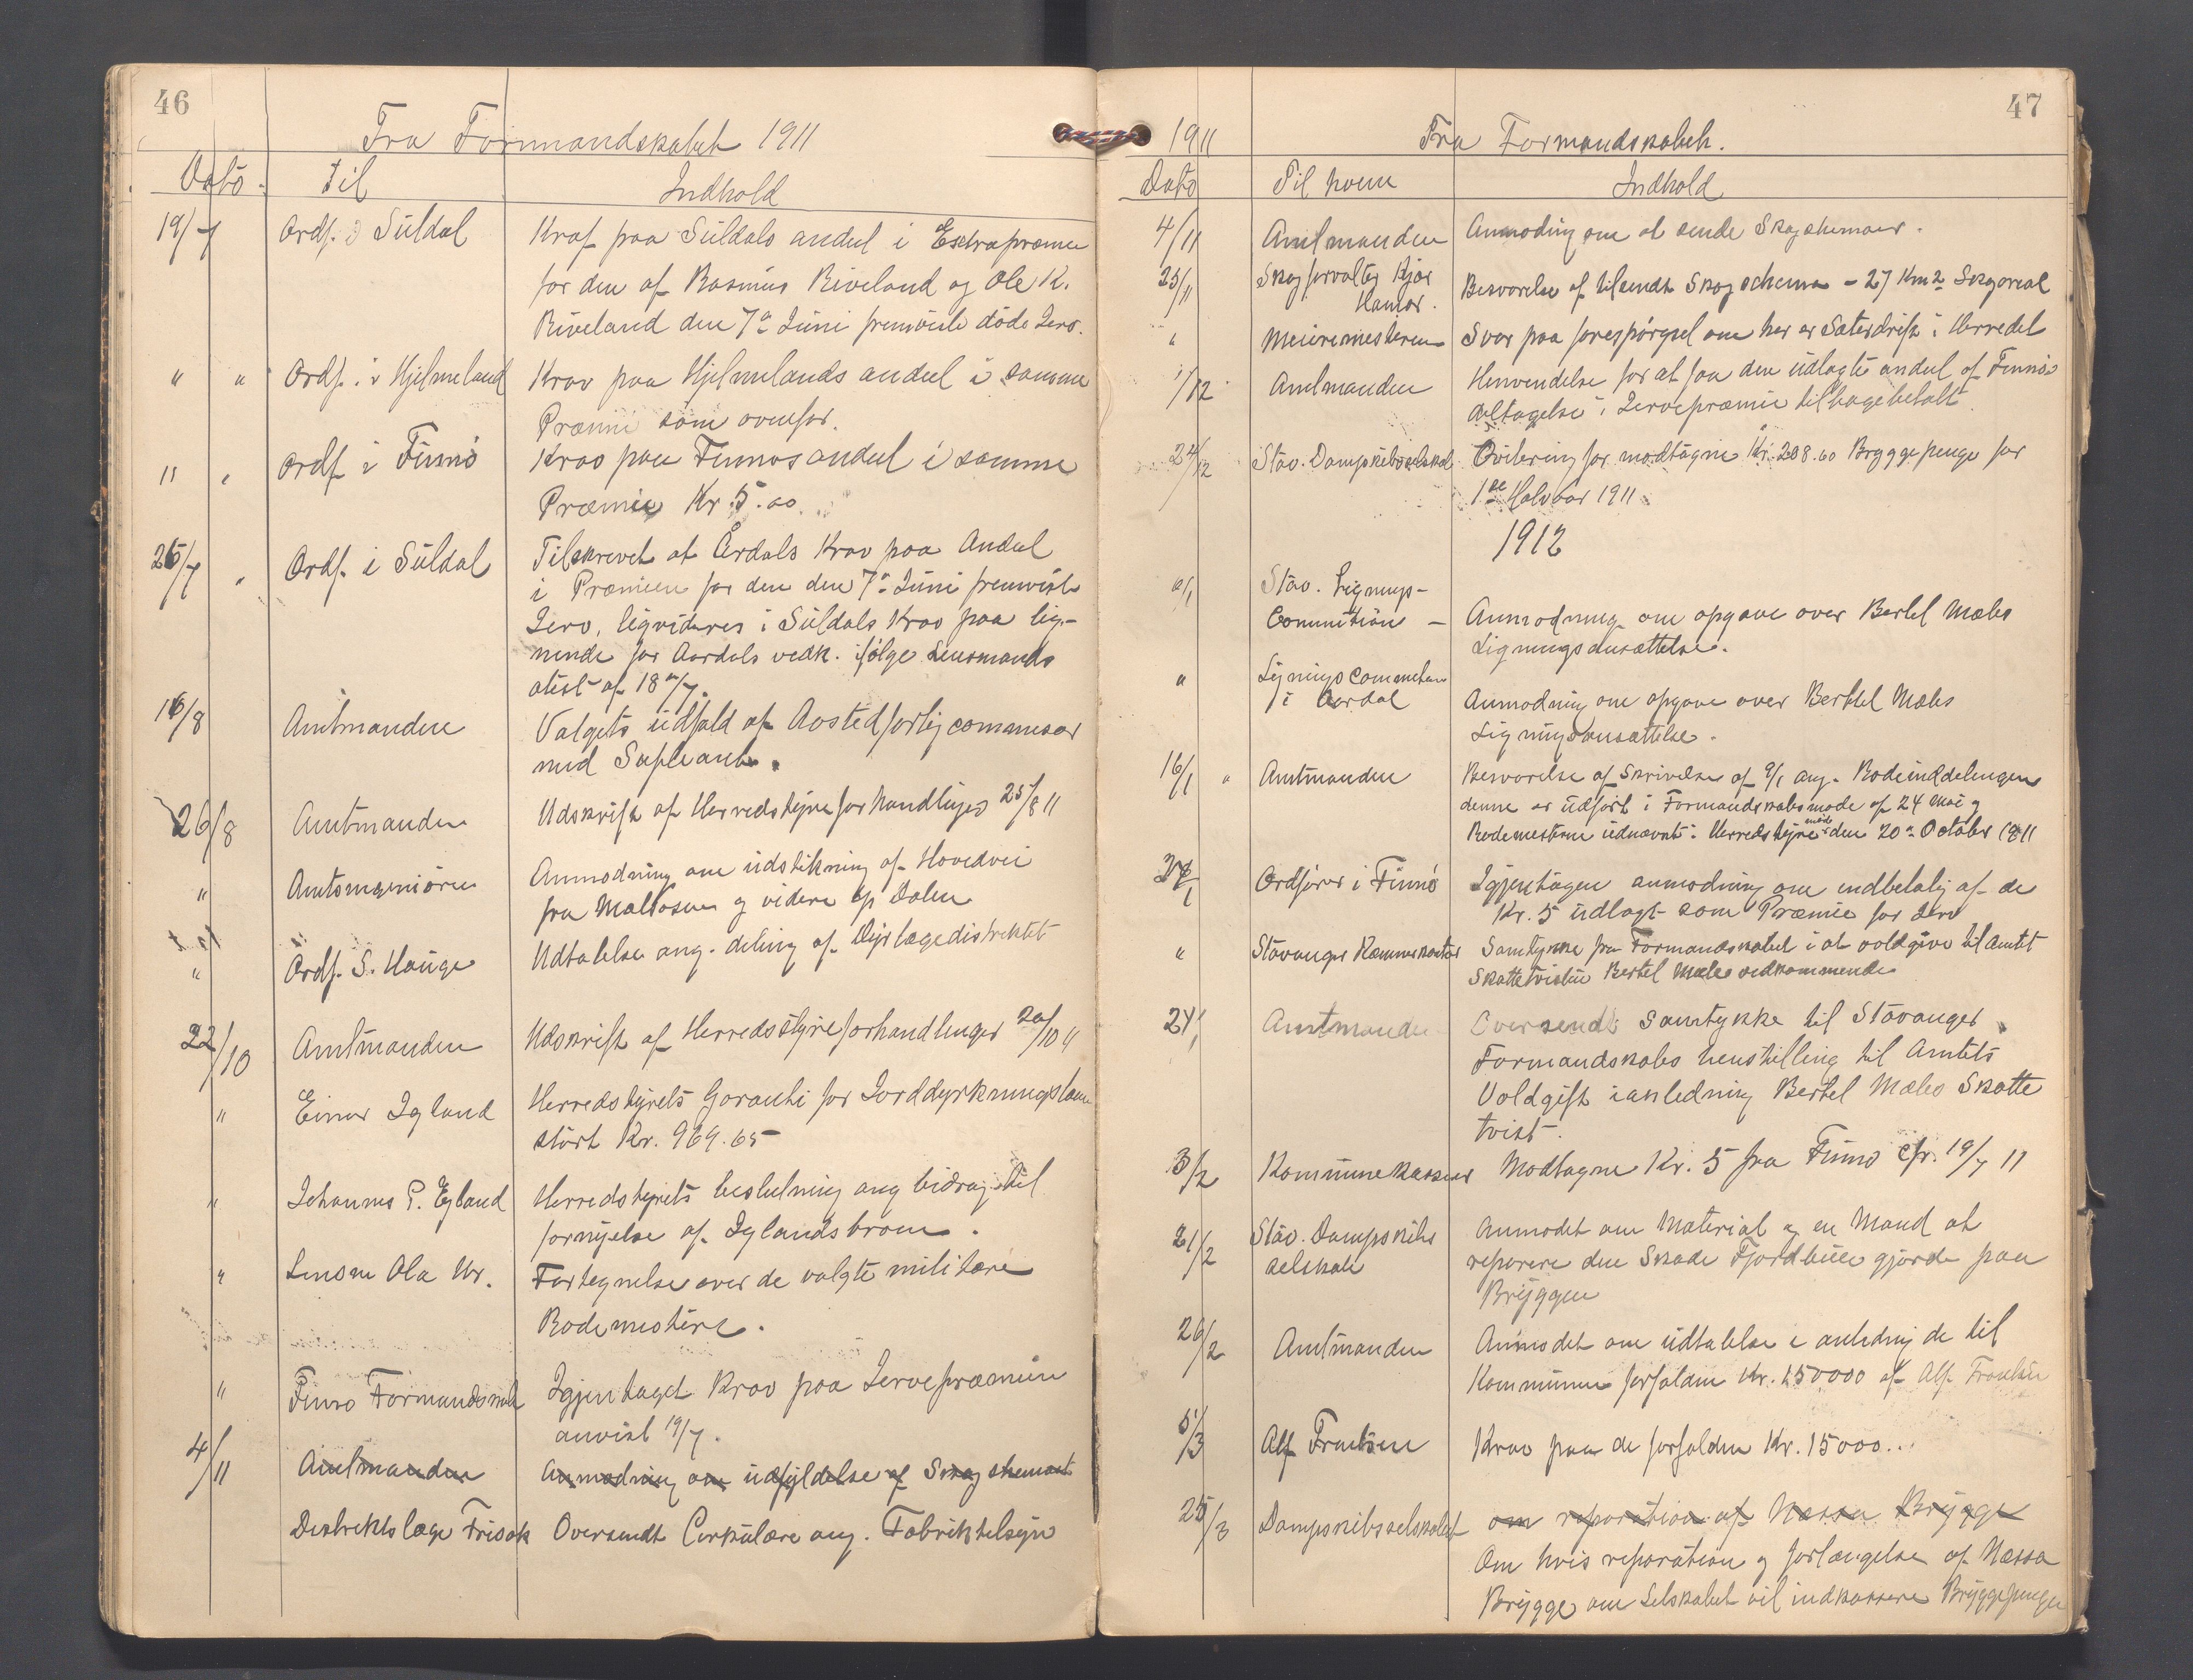 46
Fra Formandskabet 1911
Dato. til Indhold
19/7 Ordf. i Suldal Krav paa Suldals andel i Extrapræmie
for den af Rasmus Riveland og Ole K.
Riveland den 7de Juni fremviste døde Jerv.
" " Ordf. i Hjelmeland Krav paa Hjelmelands andeel i samme
Præmie som ovenfor.
" " Ordf i Finnø Krav paa Finnøs andeel i samme
Præmie Kr 5.00
25/7 " Ordf. i Suldal Tilskrevet at Årdals Krav paa Andeel
i Præmien for den den 7de Juni fremviste
Jerv, liqvideres i Suldals Krav paa lig-
nende for Aardals vedk. ifølge Lensmands
atest af 18/7.
16/8 Amtmanden Valgets udfald af Avstedforligcommisær
med Supleant.
26/8 Amtmanden Udskrift af Herredstyreforhandlinger 25/8 11
" Amtsingeniøren Anmodning om udstikning af Hovedvei
fra Valtosen og videre op Dalen
" Ordf. S. Hauge Udtalelse ang. deling af Dyrlægedistriktet
22/10 Amtmanden Udskrift af Herredsstyreforhandlinger 20/10 11
" Einar Igland Herredstyrets Garanti for Jorddyrkningslaan
stort Kr. 969.65
" Johannes P. Egland Herredstyrets beslutning ang bidrag til
fornyelse af Iglandsbroen.
" Lensm Ola Nr. Fortegnelse over de valgte militære
Rodemestere.
" Finnø Formandskab Igjentaget Krav paa Jervepræmien
anvist 19/7.
4/11 Amtmanden Anmodning om udfyldelse af Skogskemaet
Distriktslæge Frisak Oversendt Cirkulære ang. Fabriktilsyn
47
1911 Fra Formandskabet.
Dato Til hvem Indhold
4/11 Amtmanden Anmodning om at sende Skogskemaer.
25/11 Skogforvalter Kjær Besvarelse af tilsendt Skogschema - 27 Km2 Skogareal
Hamar.
" Meierimesteren Svar paa forespørgsel om her er Sæterdrift i Herredet
1/12 Amtmanden Henvendelse for at faa den udlagte andel af Finnøs
deltagelse i Jervepræmie tilbagebetalt
24/12 Stav. Dampskibsselskab Qvitering for modtagne Kr. 208.60 Bryggepenge for
1ste Halvaar 1911
1912
9/1 Stav. Lignings-
Commission - Anmodning om opgave over Bertel Mæles
Ligningsansættelse.
" Ligningscommissionen
i Aardal Anmodning om opgave over Berttel Mæles
Ligningsansættelse.
16/1 " Amtmanden Besvarelse af Skrivelse af 9/1 ang. Rodeinddelingen
denne er udført i Formandskabsmøde af 24 Mai og
Rodemestrene udnævnt i Herredstyremøde den 20de October 1911
Ordfører i Finnø Igjentagen anmodning om indbetaling af de
Kr. 5 udlagt som Præmie for Jerv
" Stavanger Kæmnerkontor Samtykke fra Formandskabet i at voldgive til Amtet
Skattetvisten Bertel Mæles vedkommende
24/1 Amtmanden Oversendt Samtykke til Stavanger
Formandskabs henstilling til Amtets
Voldgift i anledning Bertel Mæles Skatte
tvist.
3/2 Kommunekasserer Modtagne Kr. 5 fra Finnø cfr. 19/7 11
21/2 Stav. Dampskibs Anmodet om Material og en Mand at
selskab reparere den Skade Fjordbuen gjorde paa
Bryggen
26/2 Amtmanden Anmodet om udtalelse i anledning de til
Kommunen forfaldne Kr. 150000 af Alf. Frantsen
5/3 Alf Frantsen Krav paa de forfaldne Kr. 15000..
25/3 Dampskibsselskabet om reparation af Næssa Brygge
Om hvis reparation og forlængelse af Næssa
Brygge om Selskabet vil indkassere Bryggepenge